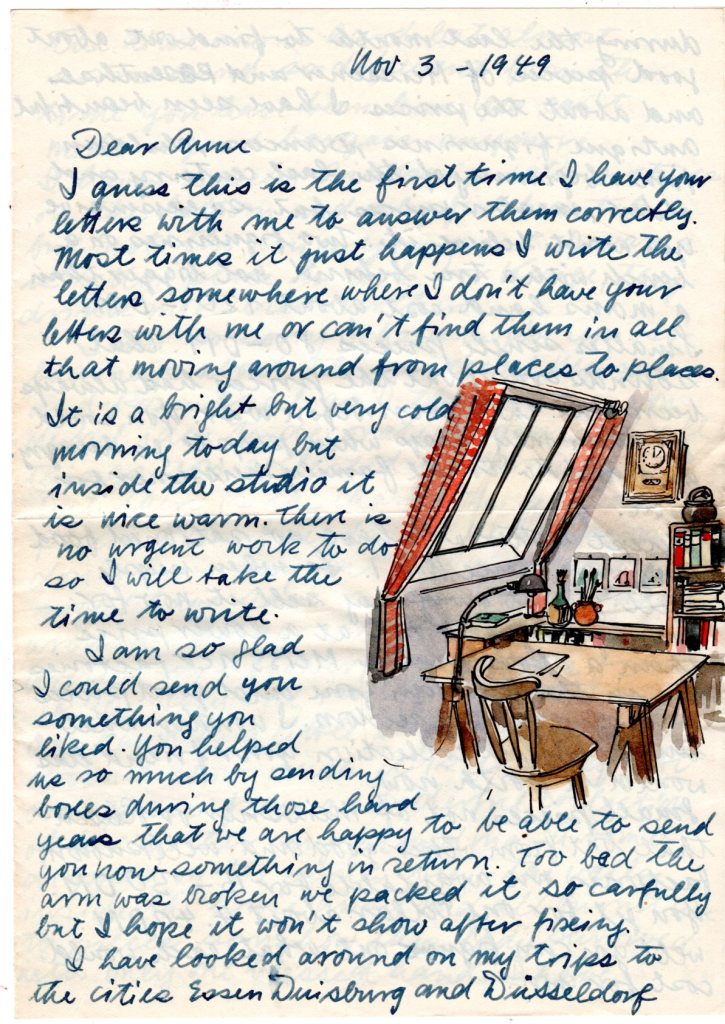 Nov 3 - 1949
Dear Anne
I guess this is the first time I have your
letters with me to answer them correctly.
Most times it just happens I write the
letters somewhere where I don't have your
letters with me or can't find them in all
that moving around from places to places.
It is a bright but very cold
morning today but
inside the studio it
is nice warm. There is
no urgent work to do
so I will take the
time to write.
I am so glad
I could send you
something you
liked. You helped
us so much by sending
boxes during those hard
years that we are happy to be able to send
you now something in return. Too bad the
arm was broken we packed it so carfully
but I hope it won't show after fixing.
I have looked around on my trips to
the cities Essen Duisburg and Düsseldorf